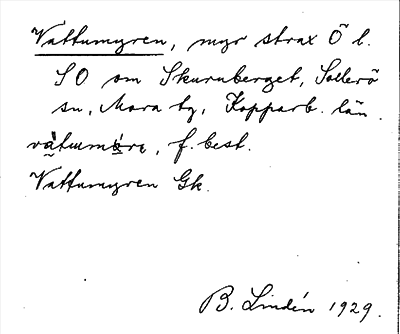 Vattumyren, myr strax Ö l.
SO om Skurnberget, Sollerö
sn, Mora tg, Kopparb. län.
, f. best.
Vattumyren Gk.
B. Lindén 1929.